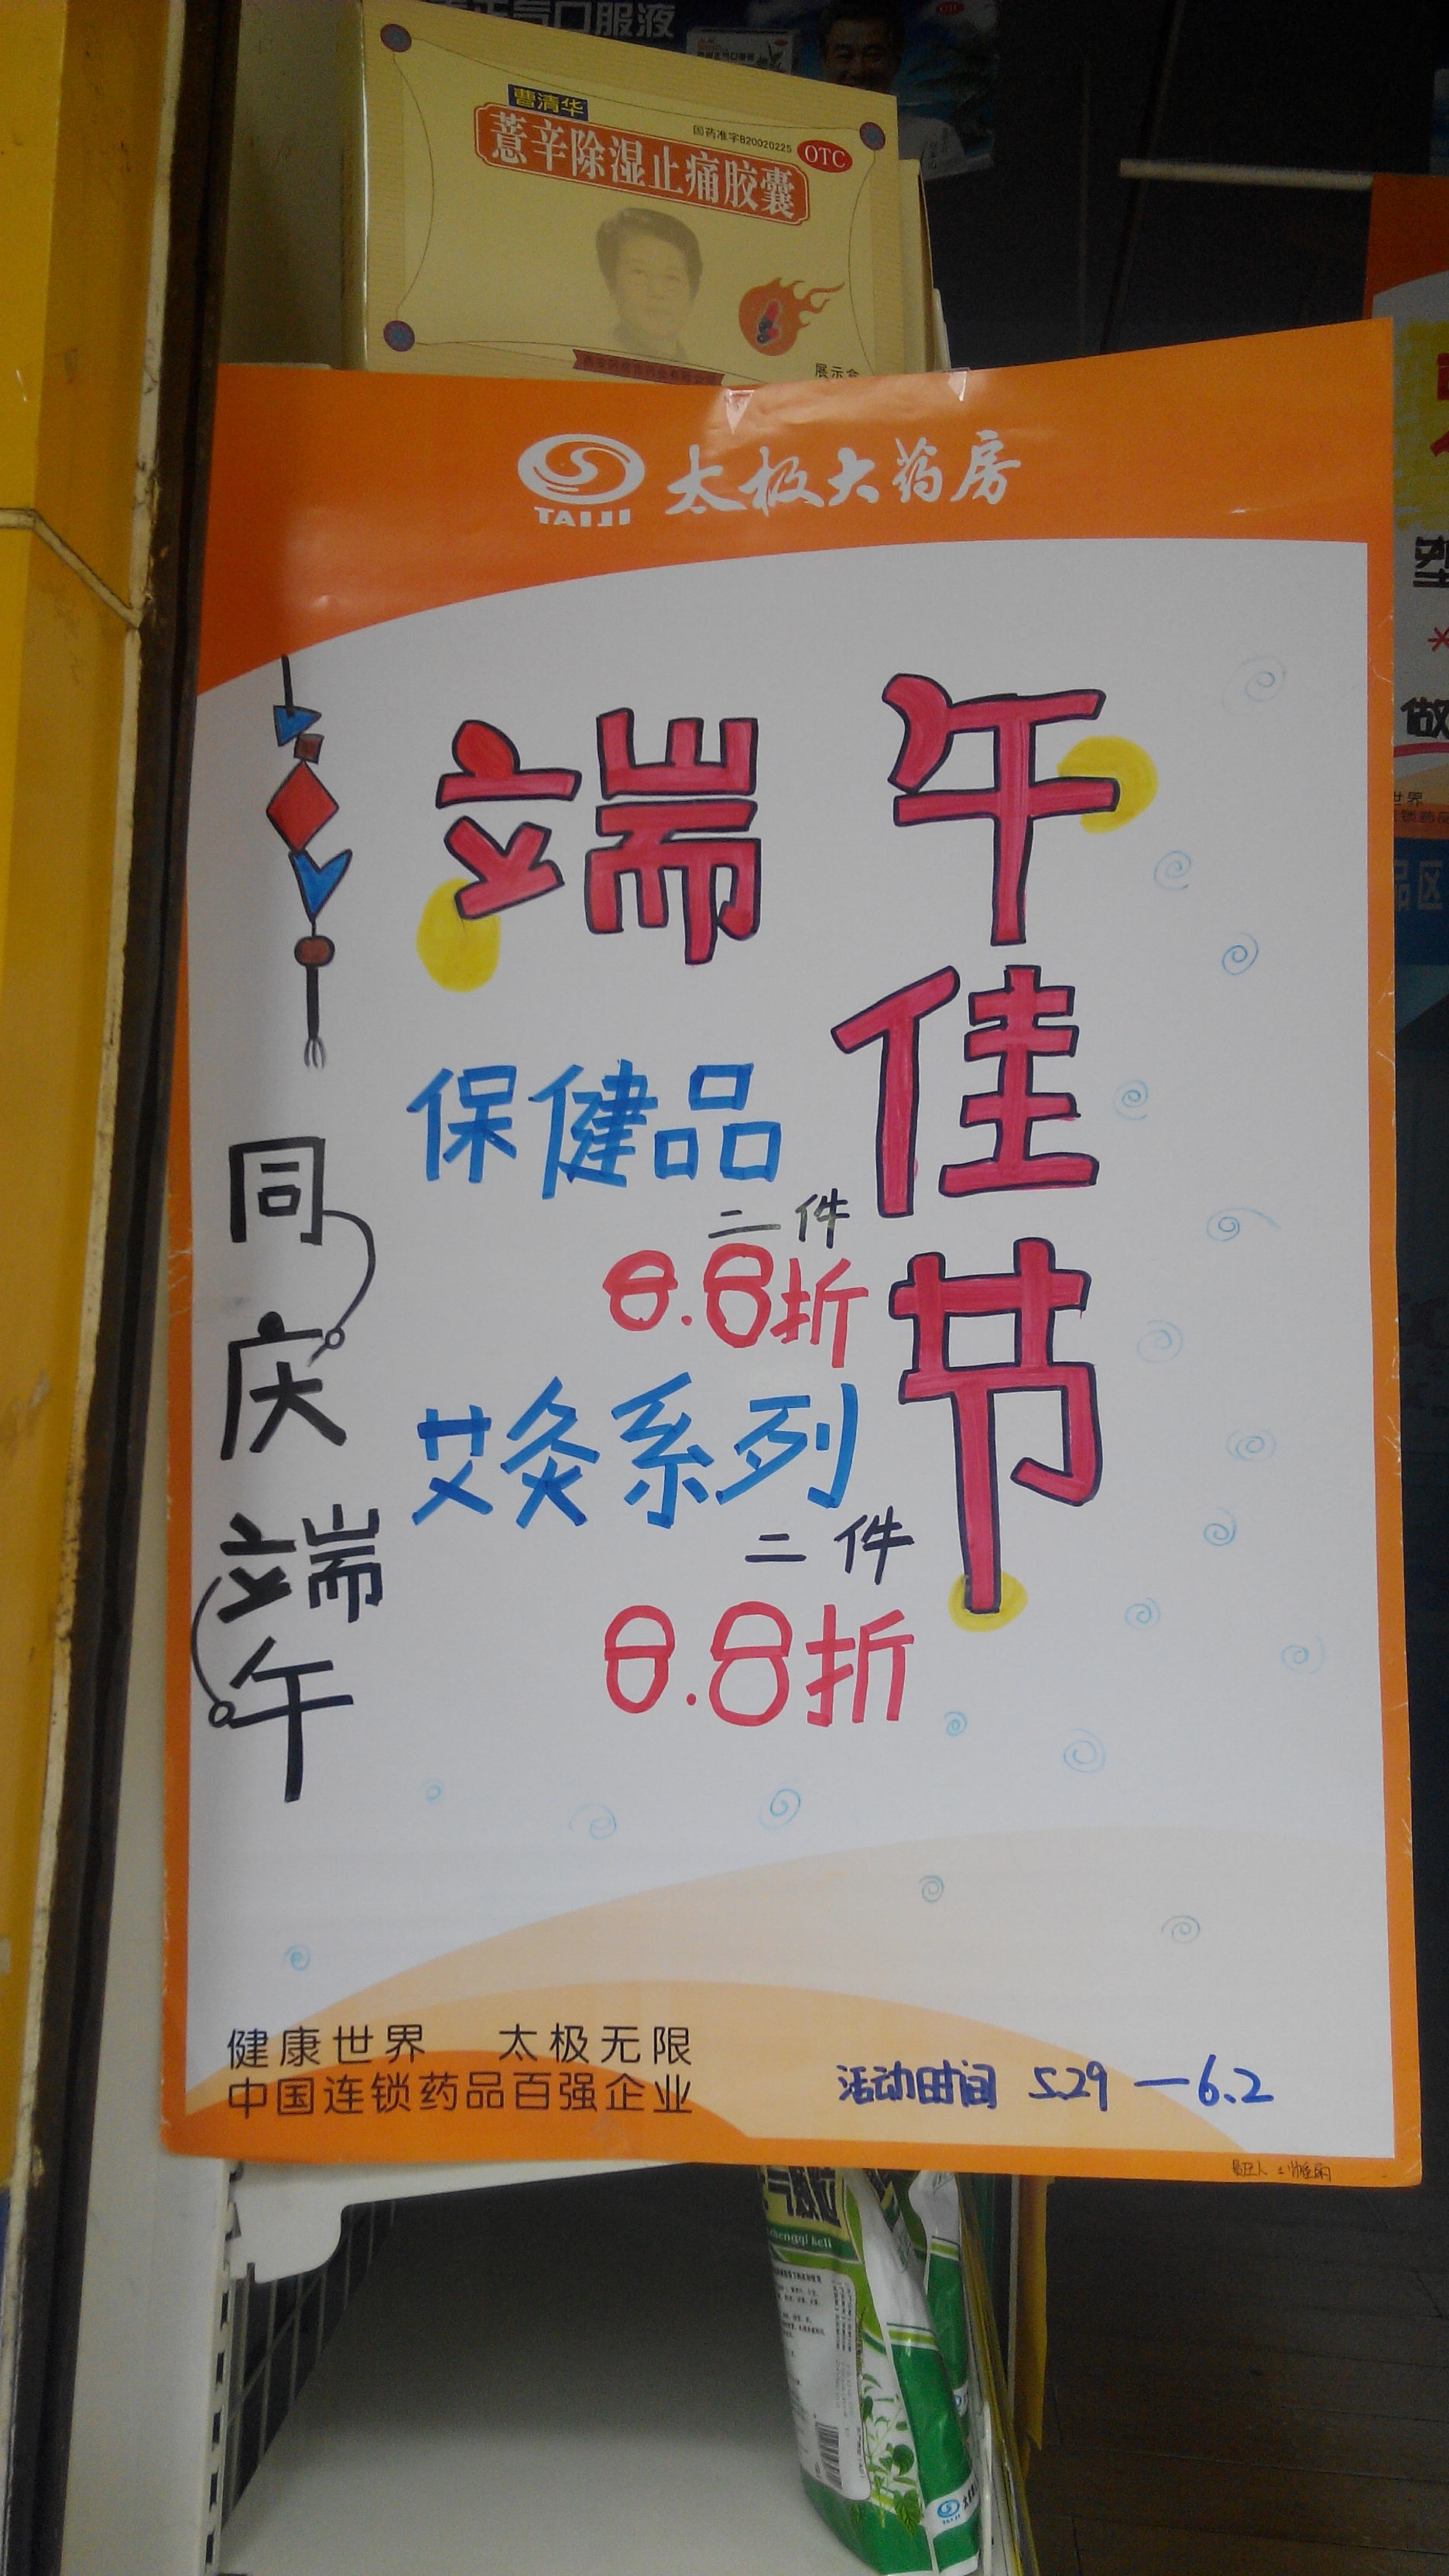 正气口服液
OTC
曹清华
国药准字B20020225
OTC
薏辛除湿止痛胶囊
展示盒
TAIJI
太极大药房
端午
佳
节
保健品
二件
8.8折
艾灸系列
二件
8.8折
同
庆
端
午
健康世界 太极无限
中国连锁药品百强企业
活动时间 5.29—6.2
做
世界
品区
chengqi keli
TAIJI